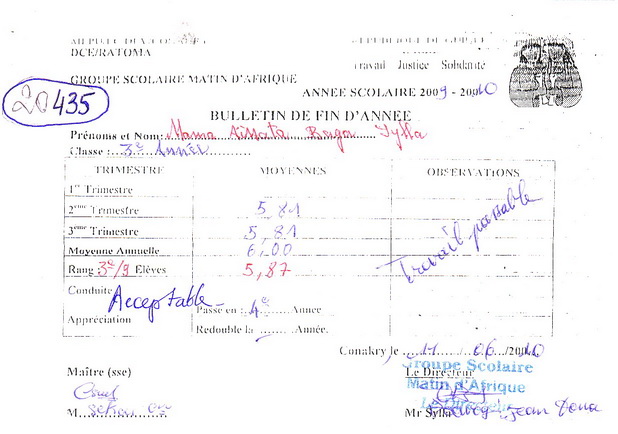 DCE/RATOMA
Travail Justice Solidarité
GROUPE SCOLAIRE MATIN D'AFRIQUE
ANNEE SCOLAIRE 2009 - 2010
20435
BULLETIN DE FIN D'ANNEE
Prénoms et Nom: Mama Aïssata Baga Sylla
Classe : 3e Année
TRIMESTRE MOYENNES OBSERVATIONS
1er Trimestre
2ème Trimestre 5,81
3ème Trimestre 5,81
Moyenne Annuelle 6,00
Rang 3e/9 Élèves 5,87
Travail passable
Conduite Acceptable
Passe en : 4e Année
Appréciation
Redouble la ........ Année.
Conakry le 11/06/2010
Maître (sse) Le Directeur
Groupe Scolaire
Matin d'Afrique
Le Directeur
M. Sékou
Mr Sylla Jean